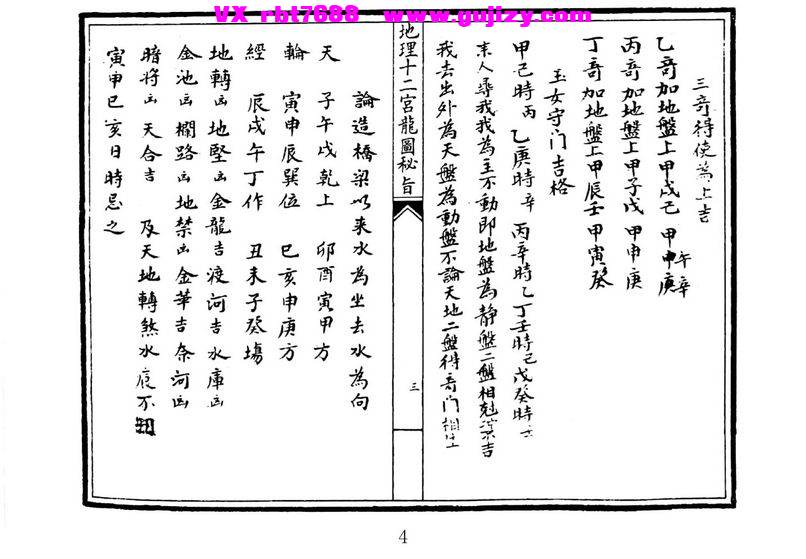 VX rbt7688 www.gujizy.com
三奇得使爲上吉
乙奇加地盤上甲戌己 甲午辛
丙奇加地盤上甲子戊 甲申庚
丁奇加地盤上甲辰壬 甲寅癸
玉女守门吉格
甲己時丙 乙庚時辛 丙辛時乙 丁壬時己 戊癸時
來人尋我我為主不動即地盤為静盤二盤相尅吉
我去出外為天盤為動盤不論天地二盤得奇门
地理十二宮龍圖秘旨
三
論造橋梁以来水為坐去水為向
天 子午戌乾上 卯酉寅甲方
輪 寅申辰巽位 巳亥申庚方
經 辰戌午丁作 丑未子癸塲
地轉凶 地堅凶 金龍吉 渡河吉 水庫凶
金池凶 欄路凶 地禁凶 金華吉 奈河凶
暗將凶 天合吉 及天地轉煞水痕不
寅申巳亥日時忌之
4